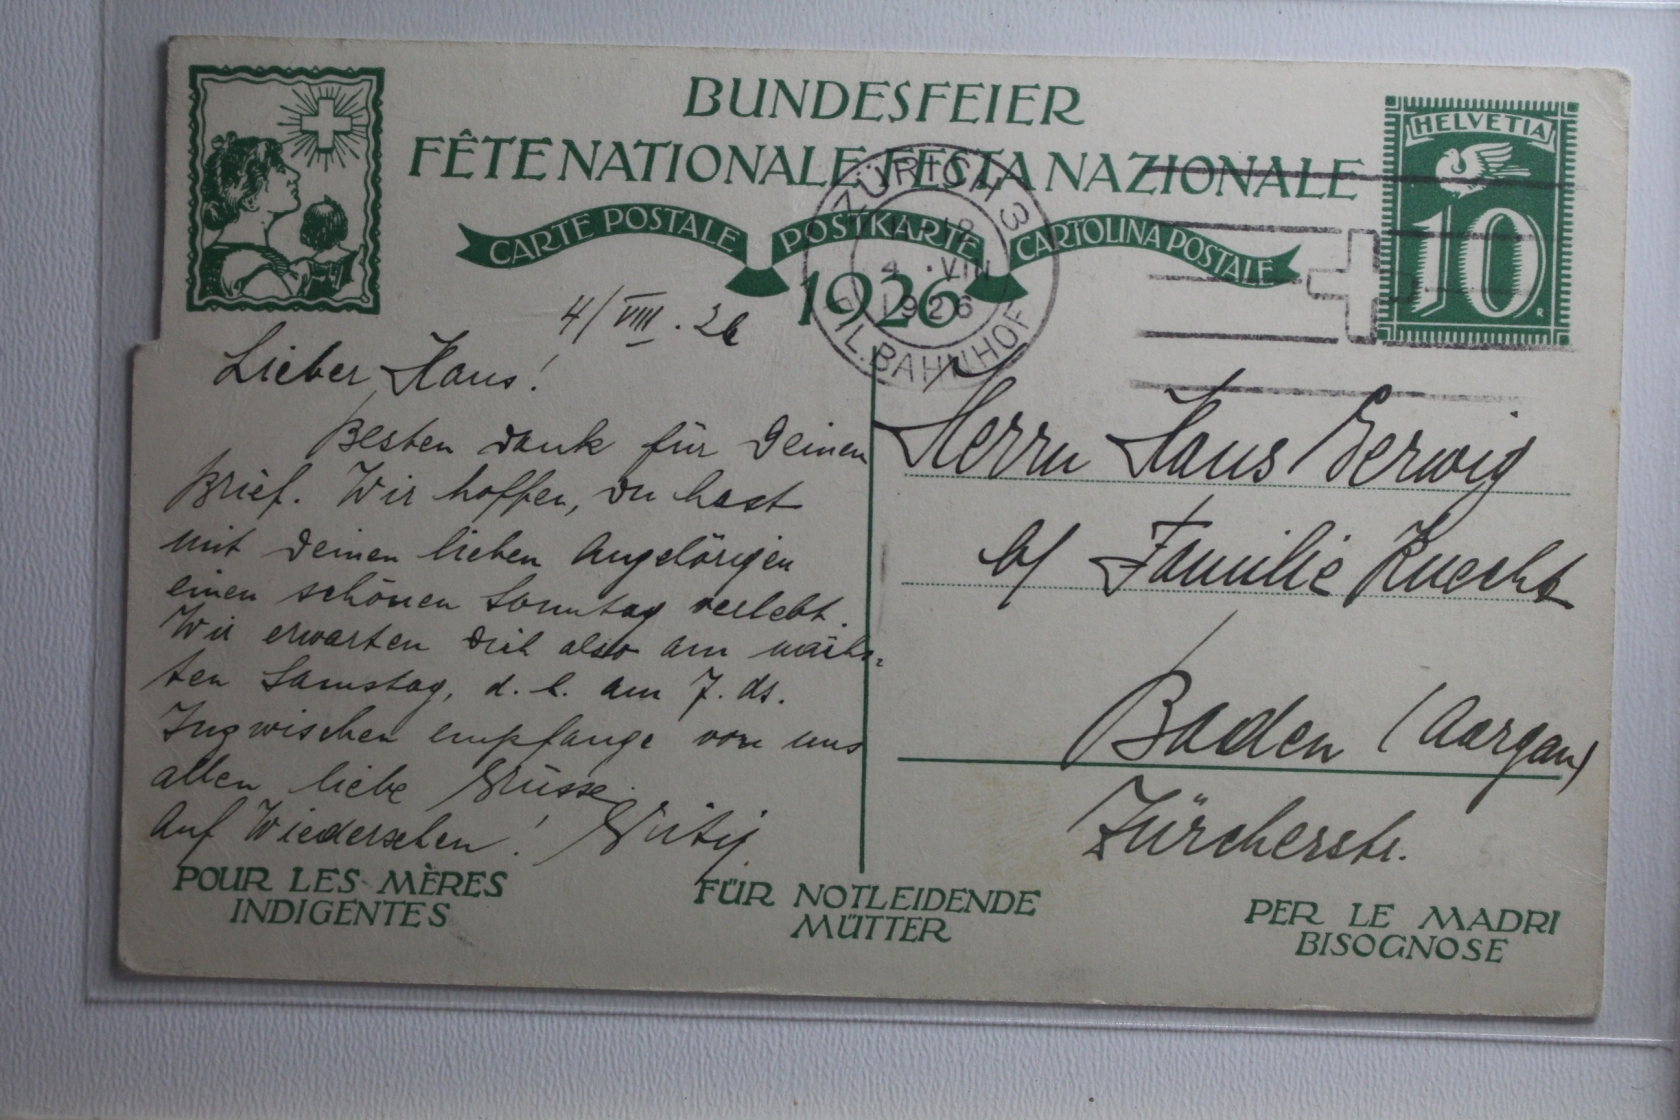 BUNDESFEIER
FÊTE NATIONALE FESTA NAZIONALE
CARTE POSTALE POSTKARTE CARTOLINA POSTALE
1926
HELVETIA
10
ZÜRICH 3
4. VIII
1926
BAHNHOF
4/VIII. 26
Lieber Hans!
Besten Dank für Deinen
Brief. Wir hoffen, Du hast
mit Deinen lieben Angehörigen
einen schönen Sonntag verlebt.
Wir erwarten Dich also am nächs-
ten Samstag, d. h. am 7. ds.
Inzwischen empfange von uns
allen liebe Grüsse.
Auf Wiedersehen!
Herrn Hans Gerwig
b/ Familie Knecht
Baden (Aargau)
Zürcherstr.
POUR LES MÈRES
INDIGENTES
FÜR NOTLEIDENDE
MÜTTER
PER LE MADRI
BISOGNOSE